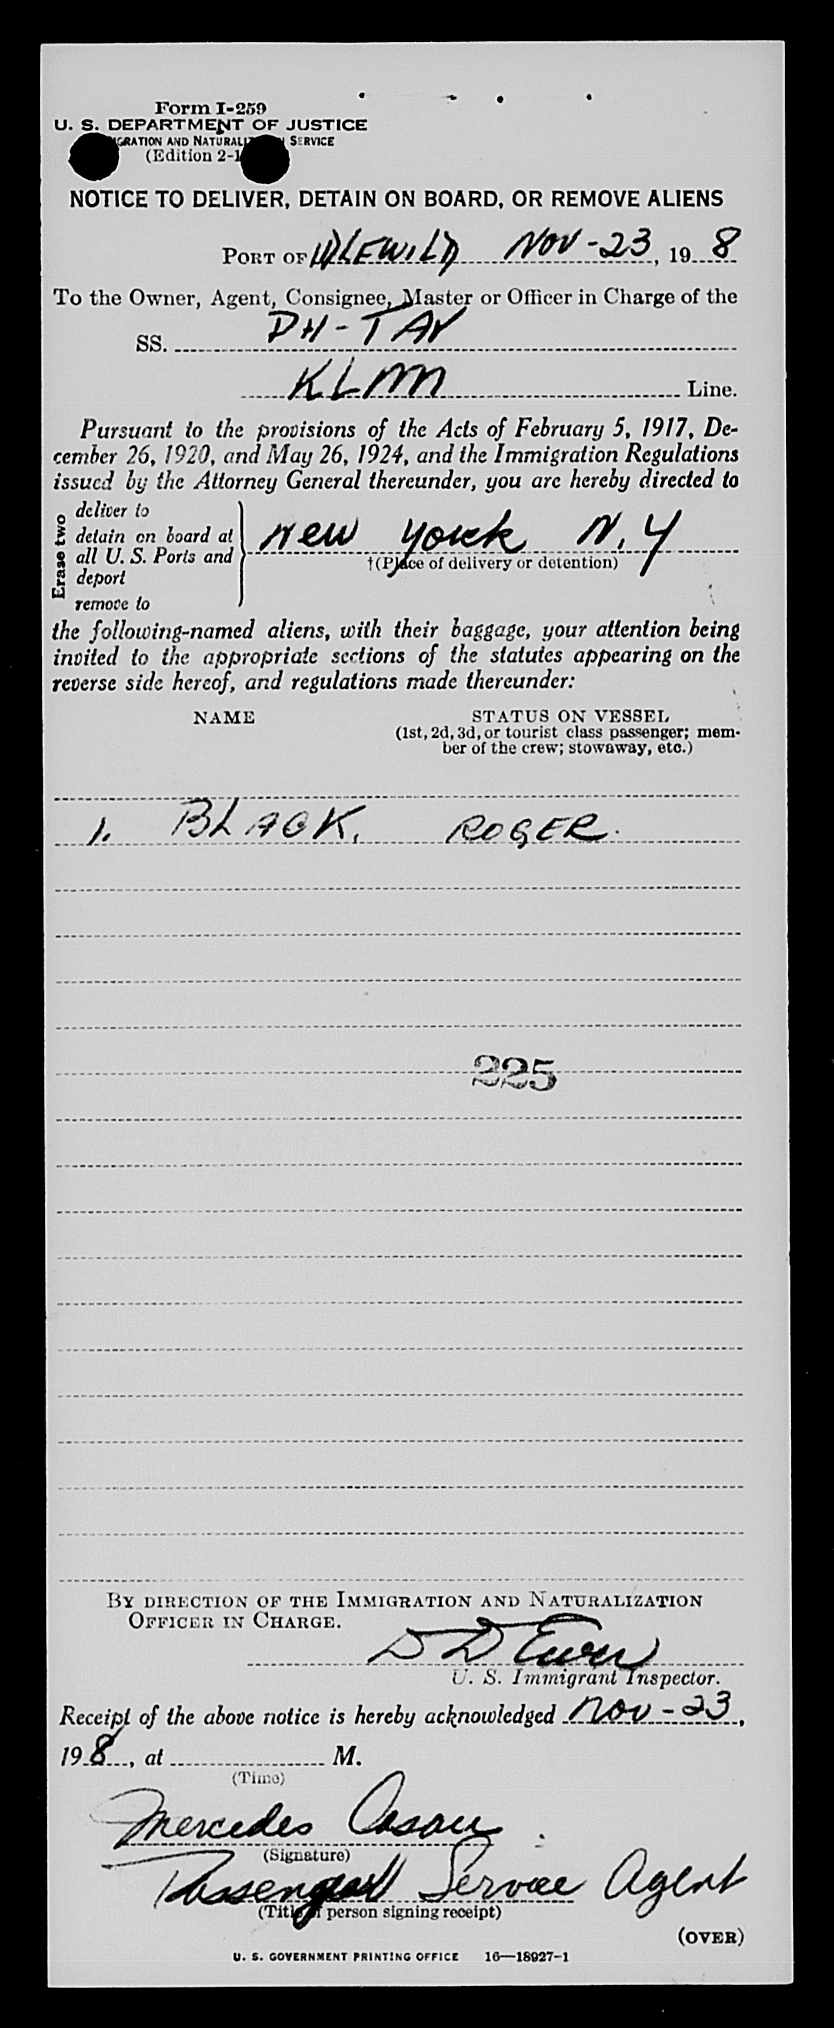 Form I-259
U. S. DEPARTMENT OF JUSTICE
GRATION AND NATURALIZ SERVICE
(Edition 2-1
NOTICE TO DELIVER, DETAIN ON BOARD, OR REMOVE ALIENS
PORT OF IDLEWILD NOV-23, 19 8
To the Owner, Agent, Consignee, Master or Officer in Charge of the
SS. PH-TAV
KLM Line.
Pursuant to the provisions of the Acts of February 5, 1917, De-
cember 26, 1920, and May 26, 1924, and the Immigration Regulations
issued by the Attorney General thereunder, you are hereby directed to
Erase two
deliver to
detain on board at
all U. S. Ports and
deport
remove to
New York N.Y
†(Place of delivery or detention)
the following-named aliens, with their baggage, your attention being
invited to the appropriate sections of the statutes appearing on the
reverse side hereof, and regulations made thereunder:
NAME STATUS ON VESSEL
(1st, 2d, 3d, or tourist class passenger; mem-
ber of the crew; stowaway, etc.)
1. BLACK, ROGER.
225
BY DIRECTION OF THE IMMIGRATION AND NATURALIZATION
OFFICER IN CHARGE.
D D Ewen
U. S. Immigrant Inspector.
Receipt of the above notice is hereby acknowledged Nov-23,
19 8, at M.
(Time)
Mercedes
(Signature)
Passenger Service Agent
(Title of person signing receipt)
(OVER)
U. S. GOVERNMENT PRINTING OFFICE 16—18927-1